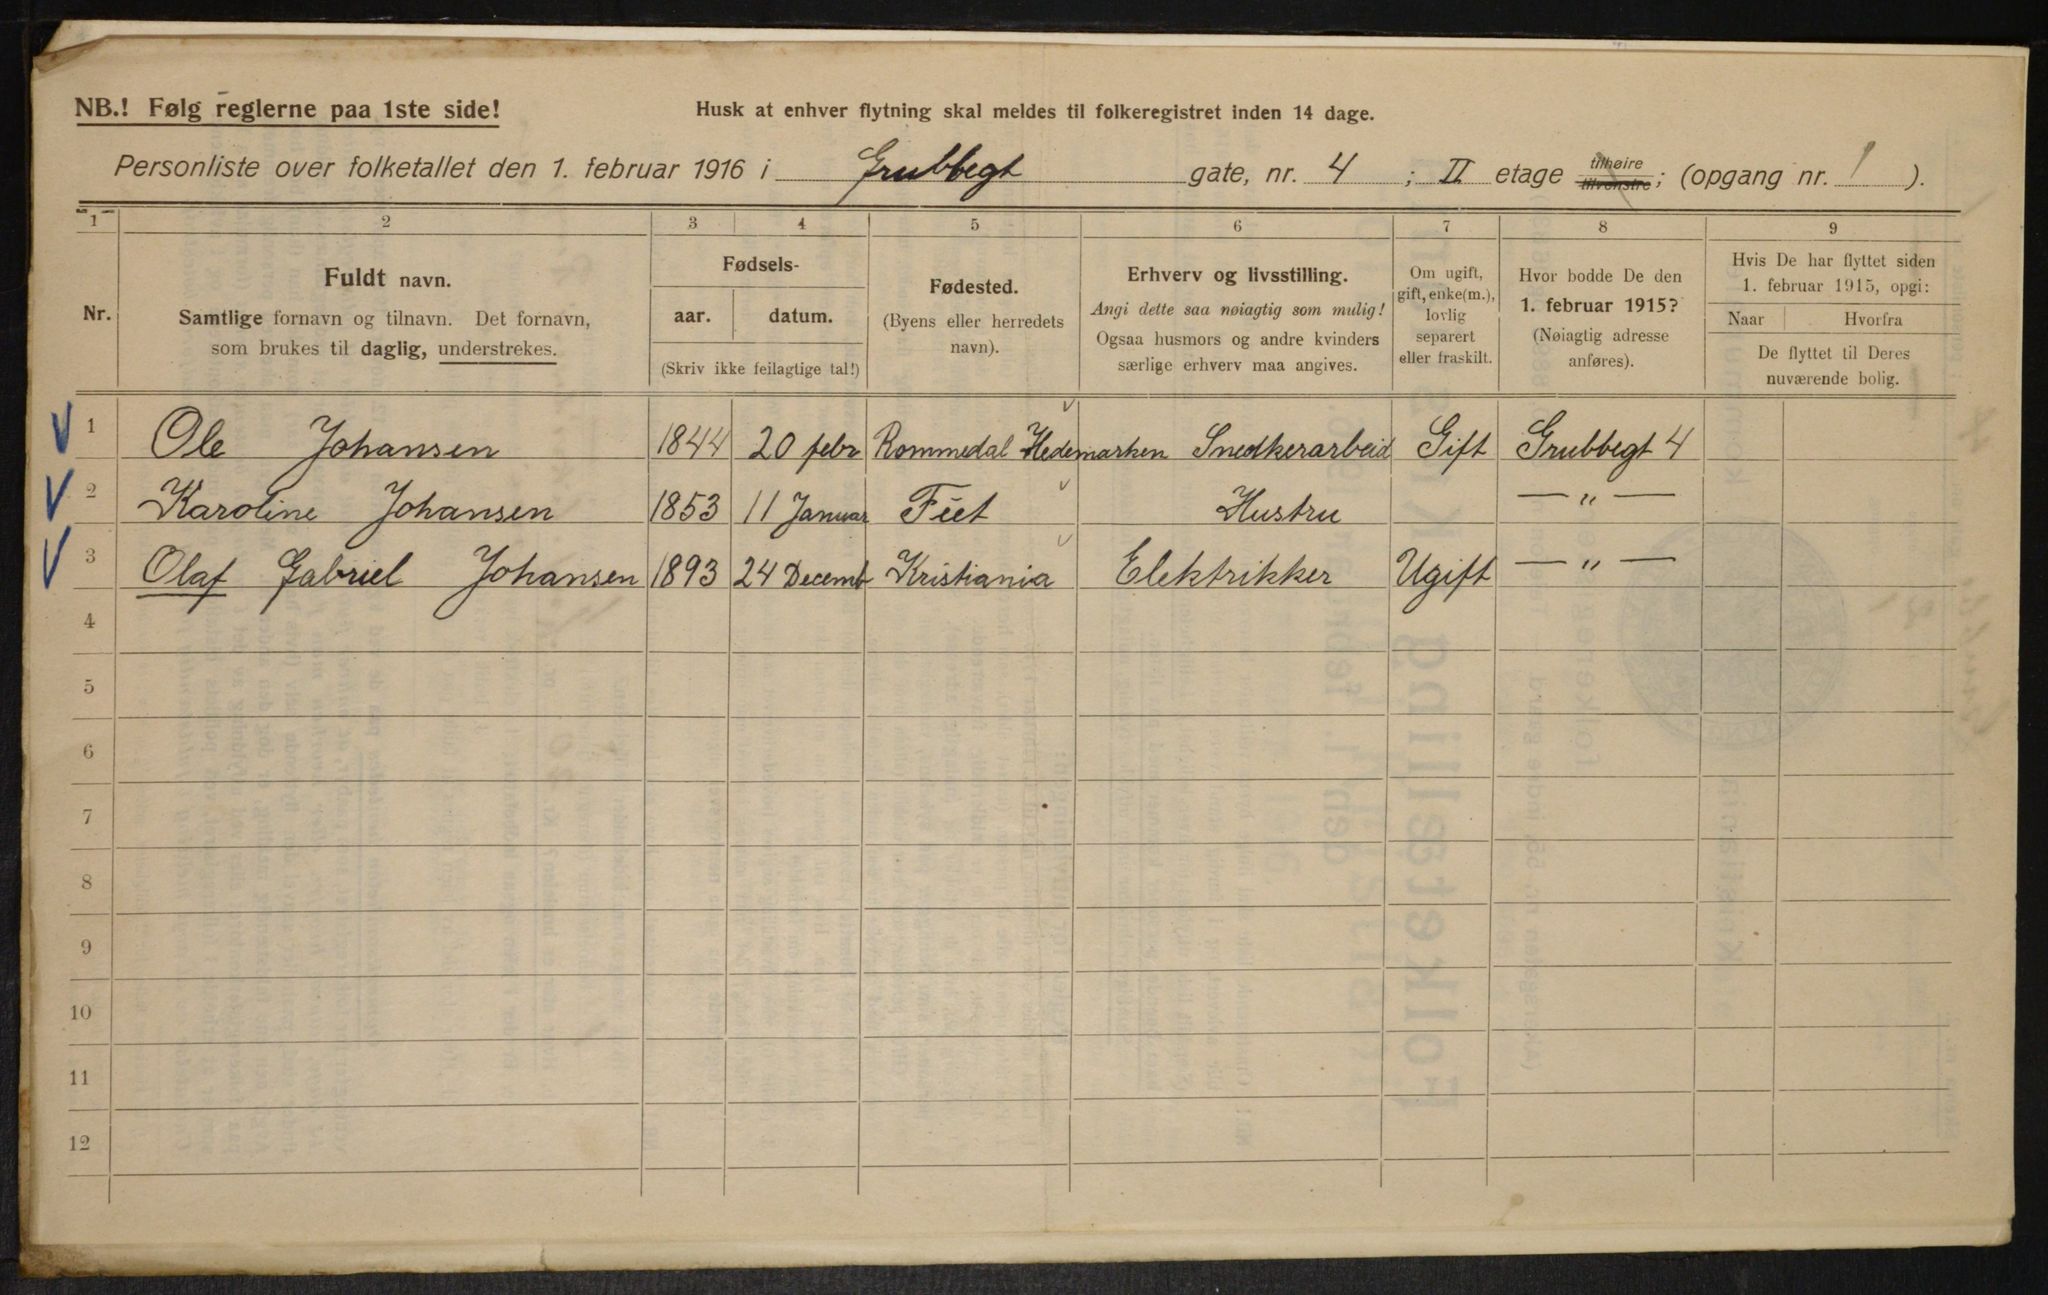 NB.! Følg reglerne paa 1ste side!
Husk at enhver flytning skal meldes til folkeregistret inden 14 dage.
Personliste over folketallet den 1. februar 1916 i Grubbegt gate, nr. 4 ; II etage tilhøire tilvenstre; (opgang nr. 1 ).
1 2 3 4 5 6 7 8 9
Nr.
Fuldt navn.
Samtlige fornavn og tilnavn. Det fornavn,
som brukes til daglig, understrekes.
Fødsels-
aar. datum.
(Skriv ikke feilagtige tal!)
Fødested.
(Byens eller herredets
navn).
Erhverv og livsstilling.
Angi dette saa nøiagtig som mulig!
Ogsaa husmors og andre kvinders
særlige erhverv maa angives.
Om ugift,
gift, enke(m.),
lovlig
separert
eller fraskilt.
Hvor bodde De den
1. februar 1915?
(Nøiagtig adresse
anføres).
Hvis De har flyttet siden
1. februar 1915, opgi:
Naar Hvorfra
De flyttet til Deres
nuværende bolig.
1 Ole Johansen 1844 20 febr Rommedal Hedemarken Snedkerarbeid Gift Grubbegt 4
2 Karoline Johansen 1853 11 Januar Feet Hustru — „ —
3 Olaf Gabriel Johansen 1893 24 Decemb Kristiania Elektrikker Ugift — „ —
4
5
6
7
8
9
10
11
12